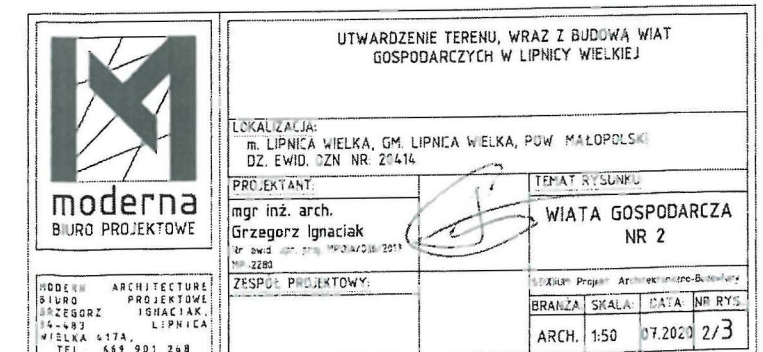 moderna
BIURO PROJEKTOWE
MODERN ARCHITECTURE
BIURO PROJEKTOWE
GRZEGORZ IGNACIAK,
34-483 LIPNICA
WIELKA 417A,
TEL. 669 901 268
UTWARDZENIE TERENU, WRAZ Z BUDOWĄ WIAT
GOSPODARCZYCH W LIPNICY WIELKIEJ
LOKALIZACJA:
m. LIPNICA WIELKA, GM. LIPNICA WIELKA, POW. MAŁOPOLSKI
DZ. EWID. OZN NR: 20414
PROJEKTANT:
mgr inż. arch.
Grzegorz Ignaciak
Nr ewid. upr. proj.
MP-2280
ZESPÓŁ PROJEKTOWY:
TEMAT RYSUNKU
WIATA GOSPODARCZA
NR 2
STADIUM: Projekt Architektoniczno-Budowlany
BRANŻA: SKALA: DATA: NR RYS.
ARCH. 1:50 07.2020 2/3